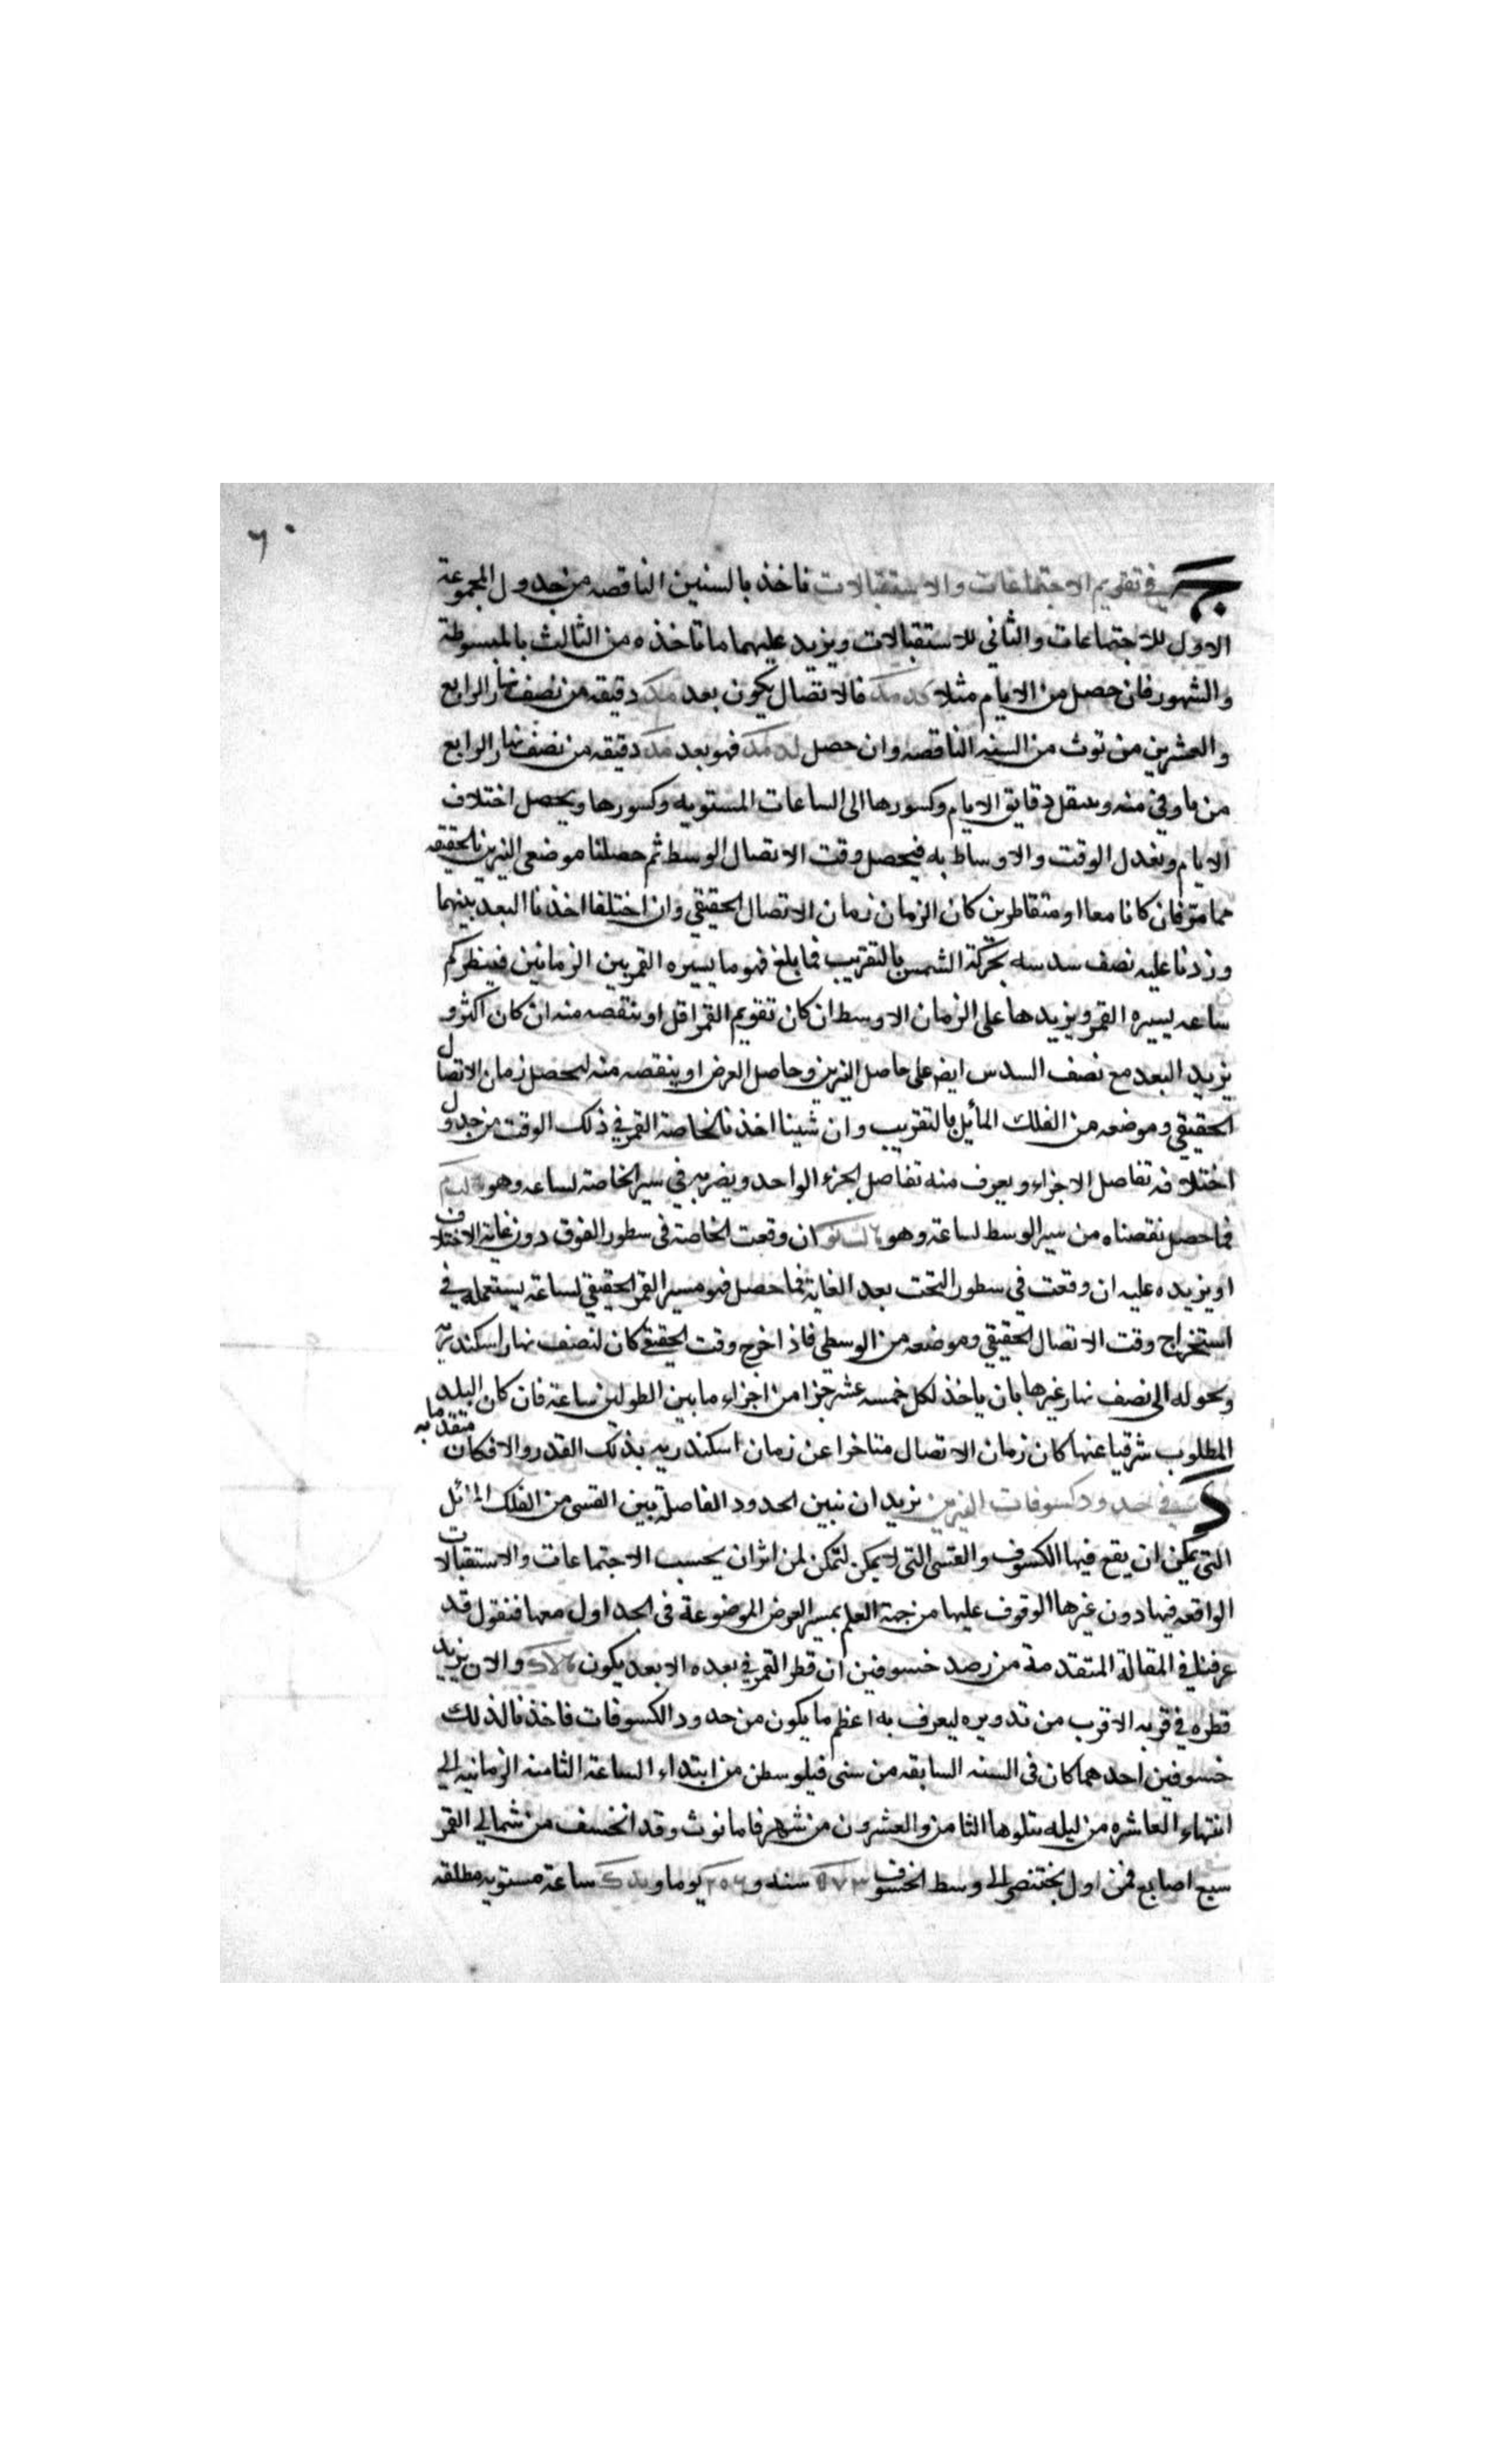 ٦٠
ج في تقويم الاجتماعات والاستقبالات ناخذ بالسنين الناقصه من جدول المجموعة
الاول للاجتماعات والثاني للاستقبالات ويزيد عليهما ما ناخذه من الثالث بالمبسوطة
والشهور فان حصل من الايام مثلا كد مد فالاتصال يكون بعد مد دقيقه من نصف نهار الرابع
والعشرين من توث من السنه الناقصه وان حصل لد مد فهو بعد مد دقيقه من نصف نهار الرابع
من باوفي منه وينقل دقايق الايام وكسورها الى الساعات المستويه وكسورها ويحصل اختلاف
الايام ونعدل الوقت والاوساط به فيحصل وقت الاتصال الوسط ثم حصلنا موضعي النيرين بالحقيقه
فان كانا معا او متقاطرين كان الزمان زمان الاتصال الحقيقي وان اختلفا اخذنا البعد بينهما
وزدنا عليه نصف سدسه بحركة الشمس بالتقريب فما بلغ فهو ما يسيره القمر بين الزمانين فينظر كم
ساعه يسيره القمر ويزيدها على الزمان الاوسط ان كان تقويم القمر اقل او ينقصه منه ان كان اكثر و
يزيد البعد مع نصف السدس ايضا على حاصل النيرين وحاصل العرض او ينقصه منه ليحصل زمان الاتصال
الحقيقي وموضعه من الفلك المائل بالتقريب وان شينا اخذنا بخاصة القمر في ذلك الوقت من جدول
اختلافه تفاضل الاجزاء ويعرف منه تفاضل الجزء الواحد ويضربه في سير الخاصه لساعه وهو
فما حصل نقصناه من سير الوسط لساعة وهو ان وقعت الخاصة في سطور الفوق دون غاية الاختلاف
او يزيده عليه ان وقعت في سطور التحت بعد الغاية فما حصل فهو مسير القمر الحقيقي لساعة يستعمله في
استخراج وقت الاتصال الحقيقي وموضعه من الوسطى فاذا خرج وقت الحقيقي كان لنصف نهار اسكندريه
ونحوله الى نصف نهار غيرها بان ياخذ لكل خمسه عشر جزا من اجزاء ما بين الطولين ساعة فان كان البلد
المطلوب شرقيا عنها كان زمان الاتصال متاخرا عن زمان اسكندريه بذلك القدر والا فكان متقدما به
د في حدود كسوفات النيرين نريد ان نبين الحدود الفاصلة بين القسى من الفلك المائل
التي يمكن ان يقع فيها الكسوف والقسى التي لا يمكن لتمكن لمن اثر ان يحسب الاجتماعات والاستقبالات
الواقعه فيها دون غيرها الوقوف عليها من جهة العلم بمسير العرض الموضوعة في الجداول معها فنقول قد
عرفنا في المقالة المتقدمة من رصد خسوفين ان قطر القمر في بعده الابعد يكون والان نريد
قطره في قربه الاقرب من تدويره ليعرف به اعظم ما يكون من حدود الكسوفات فاخذنا لذلك
خسوفين احدهما كان في السنه السابعه من سنى فيلوسطن من ابتداء الساعة الثامنه الزمانيه الى
انتهاء العاشره من ليله يتلوها الثامن والعشرون من شهر فامانوث وقد انخسف من شمالي القمر
سبع اصابع فمن اول بختنصر الى وسط الخسوف ٥٧٣ سنه و ٢٠٦ يوما و يد ك ساعة مستويه مطلقه